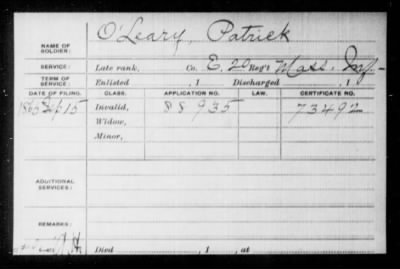 NAME OF SOLDIER: O'Leary, Patrick
SERVICE: Late rank, Co. E, 20 Reg't Mass. Inf.
TERM OF SERVICE: Enlisted , 1 Discharged , 1
DATE OF FILING. CLASS. APPLICATION NO. LAW. CERTIFICATE NO.
1865 Sept 15 Invalid, 88935 73492
Widow,
Minor,
ADDITIONAL SERVICES:
REMARKS:
Died , 1 , at